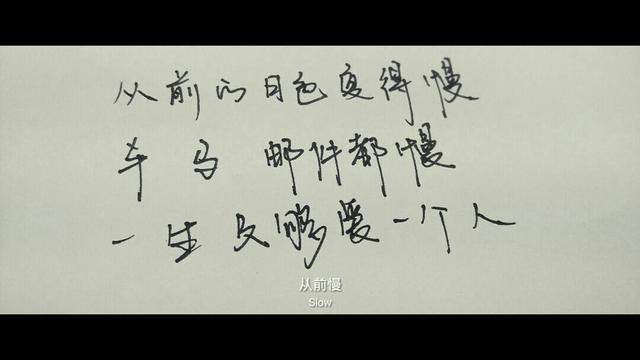 从前的日色变得慢
车马 邮件都慢
一生只够爱一个人
从前慢
Slow